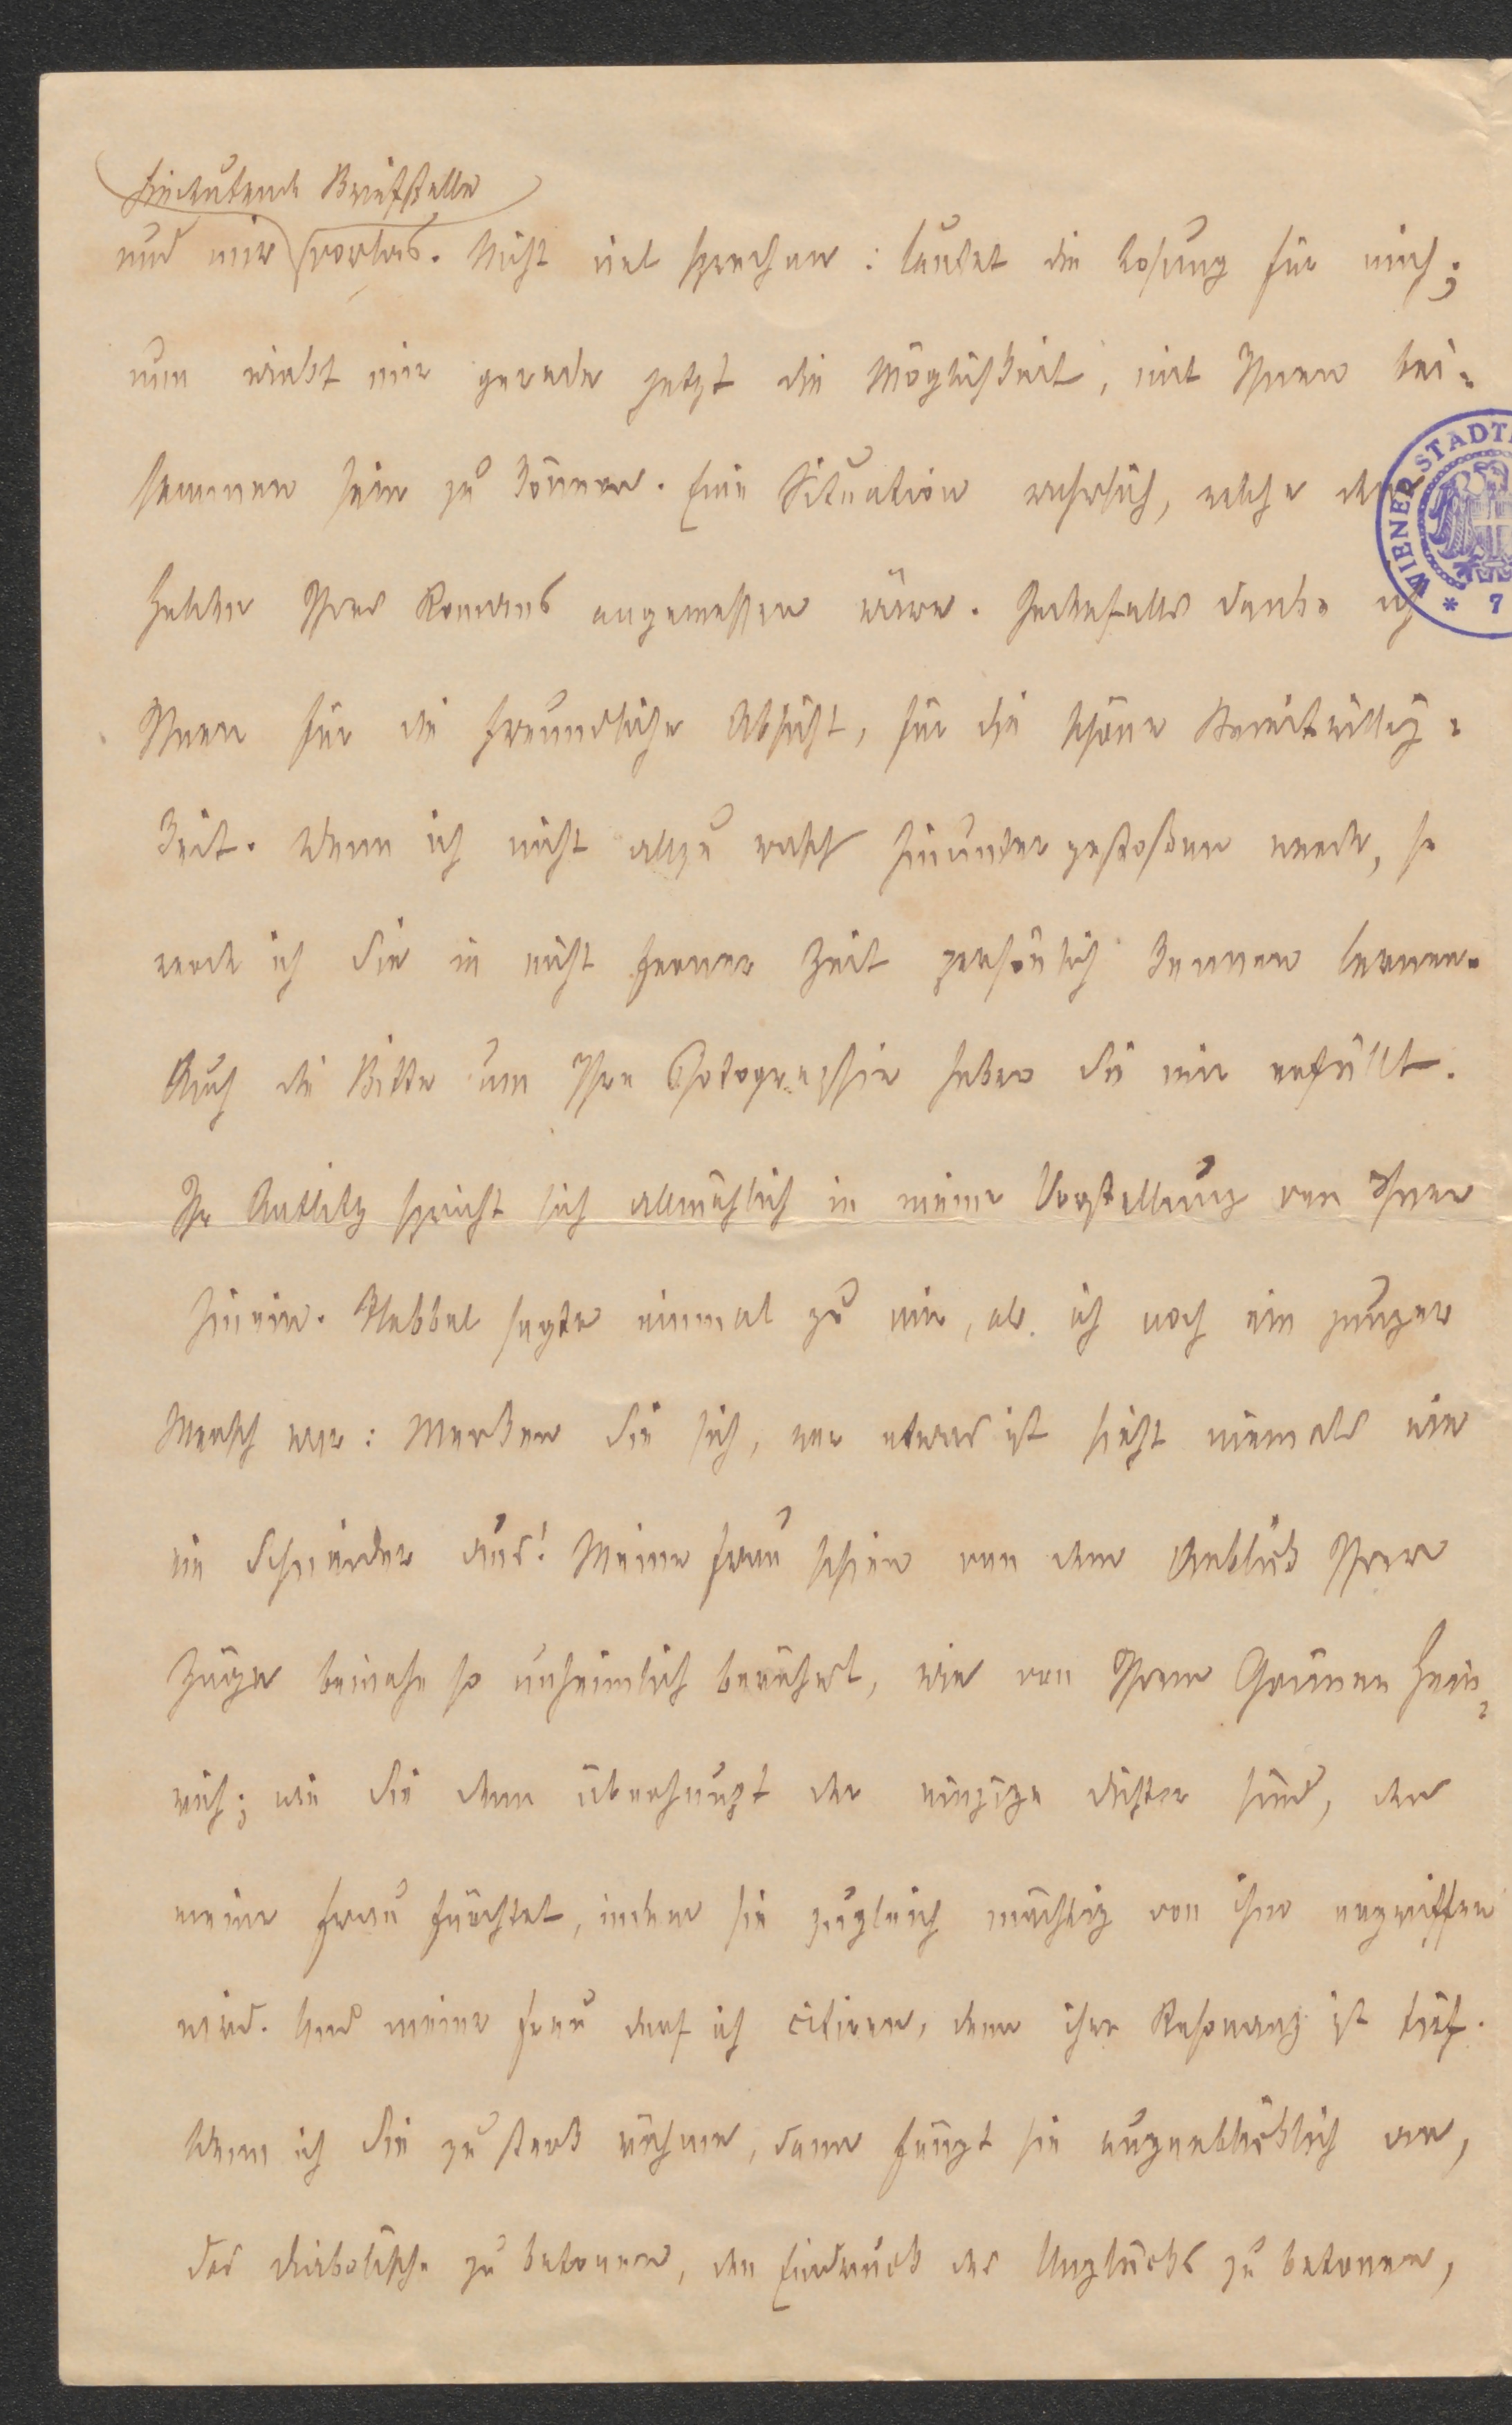 hindeutende Briefstelle
und mir vorlas. Nicht viel sprechen: lautet die Losung für mich;
nun winkt mir gerade jetzt die Möglichkeit, mit Ihnen bei-
sammen sein zu können. Eine Situation wahrlich, welche des
Helden Ihres Romans angemessen wäre. Jedenfalls danke ich
Ihnen für die freundliche Absicht, für die schöne Bereitwillig-
keit. Wenn ich nicht allzu rasch hinunter gestoßen werde, so
werde ich Sie in nicht ferner Zeit persönlich kennen lernen.
Auch die Bitte um Ihre Photographie haben Sie mir erfüllt.
Ihr Antlitz spricht sich allmählich in meine Vorstellung von Ihnen
hinein. Hebbel sagte einmal zu mir, als ich noch ein junger
Mensch war: Merken Sie sich, wer etwas ist sieht niemals wie
ein Schneider aus! Meine Frau schien von dem Anblick Ihrer
Züge beinahe so unheimlich berührt, wie von Ihrem Grünen Hein-
rich; wie Sie denn überhaupt der einzige Dichter sind, den
meine Frau fürchtet, indem sie zugleich mächtig von ihm ergriffen
wird. Und meine Frau darf ich citiren, denn ihre Resonanz ist tief.
Wenn ich Sie zu stark rühme, dann fängt sie augenblicklich an,
das Diabolische zu betonen, den Eindruck des Unglücks zu betonen,
WIENER STADT
* 7